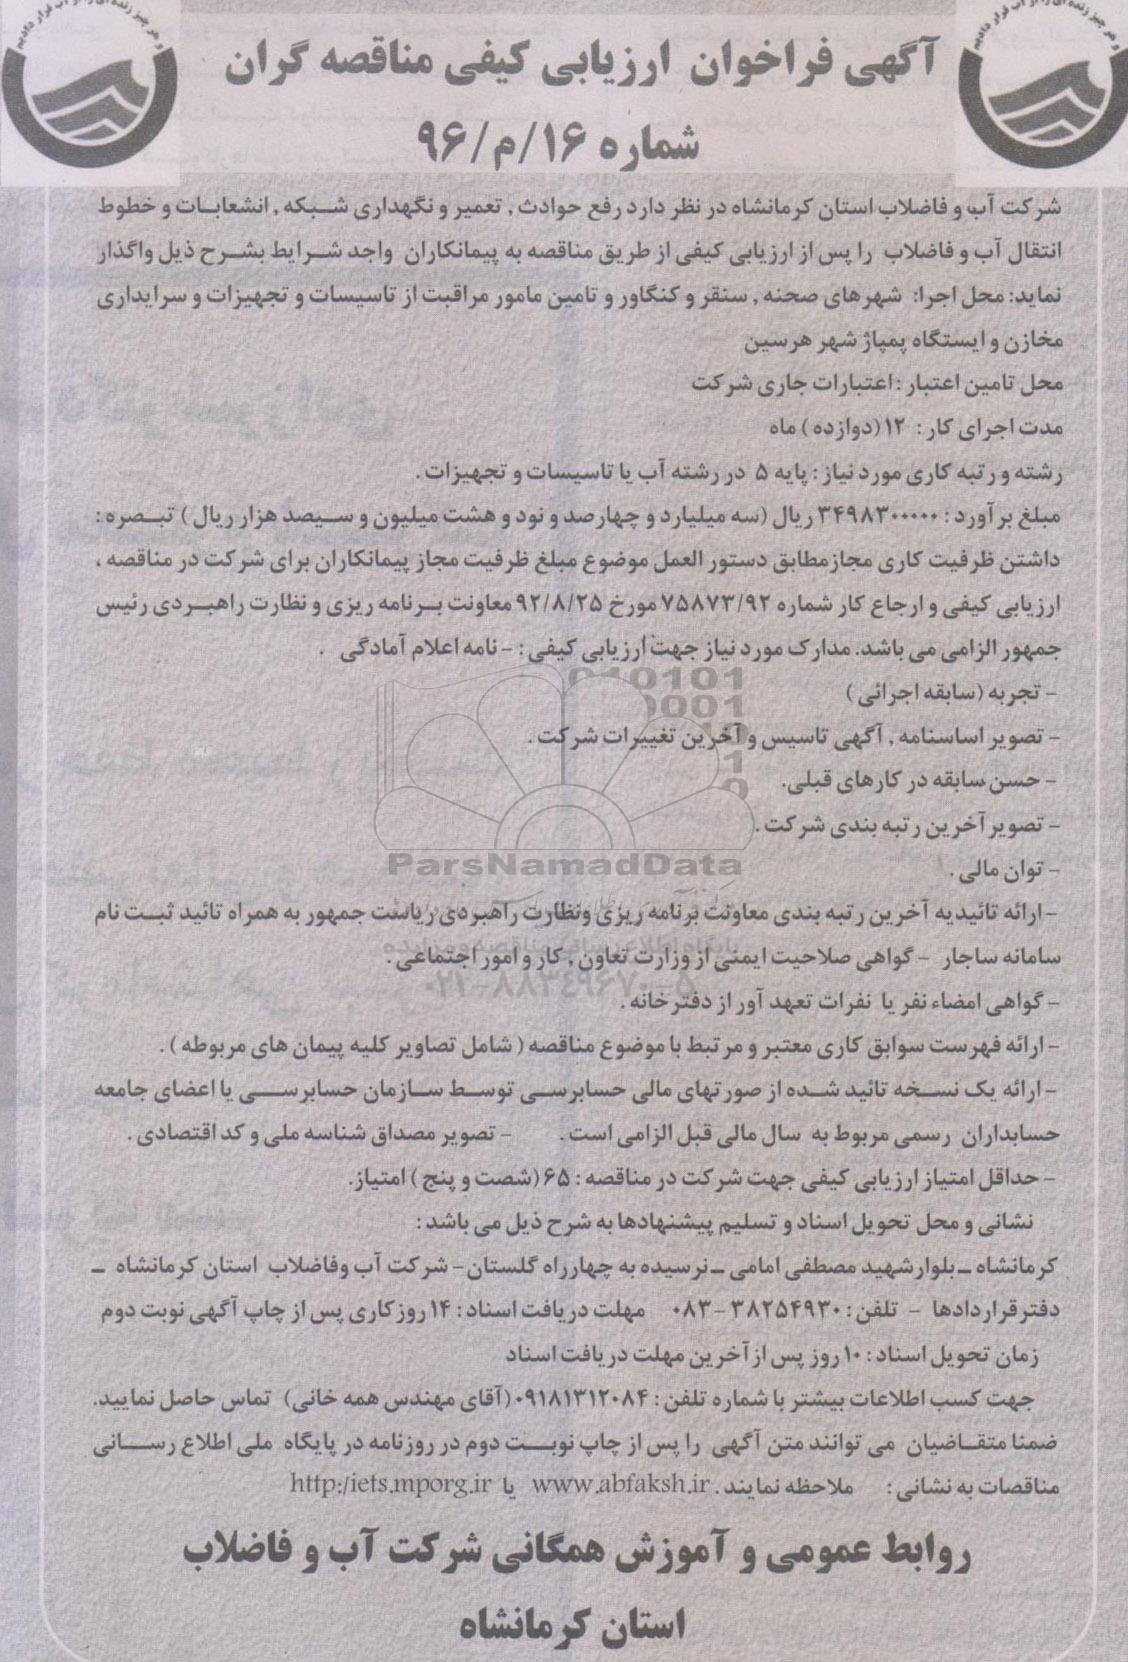 و هر چیز زنده ای را از آب قرار دادیم
و هر چیز زنده ای را از آب قرار دادیم
آگهی فراخوان ارزیابی کیفی مناقصه گران
شماره ۱۶/م/۹۶
شرکت آب و فاضلاب استان کرمانشاه در نظر دارد رفع حوادث , تعمیر و نگهداری شبکه , انشعابات و خطوط
انتقال آب و فاضلاب را پس از ارزیابی کیفی از طریق مناقصه به پیمانکاران واجد شرایط بشرح ذیل واگذار
نماید: محل اجرا: شهرهای صحنه , سنقر و کنگاور و تامین مامور مراقبت از تاسیسات و تجهیزات و سرایداری
مخازن و ایستگاه پمپاژ شهر هرسین
محل تامین اعتبار : اعتبارات جاری شرکت
مدت اجرای کار : ۱۲ (دوازده ) ماه
رشته و رتبه کاری مورد نیاز : پایه ۵ در رشته آب یا تاسیسات و تجهیزات .
مبلغ برآورد : ۳۴۹۸۳۰۰۰۰۰ ریال (سه میلیارد و چهارصد و نود و هشت میلیون و سیصد هزار ریال ) تبصره :
داشتن ظرفیت کاری مجازمطابق دستور العمل موضوع مبلغ ظرفیت مجاز پیمانکاران برای شرکت در مناقصه ،
ارزیابی کیفی و ارجاع کار شماره ۷۵۸۷۳/۹۲ مورخ ۹۲/۸/۲۵ معاونت برنامه ریزی و نظارت راهبردی رئیس
جمهور الزامی می باشد. مدارک مورد نیاز جهت ارزیابی کیفی : - نامه اعلام آمادگی .
- تجربه (سابقه اجرائی )
- تصویر اساسنامه , آگهی تاسیس و آخرین تغییرات شرکت .
- حسن سابقه در کارهای قبلی.
- تصویر آخرین رتبه بندی شرکت .
- توان مالی .
ParsNamadData
- ارائه تائیدیه آخرین رتبه بندی معاونت برنامه ریزی ونظارت راهبردی ریاست جمهور به همراه تائید ثبت نام
پایگاه اطلاع رسانی مناقصه و مزایده
سامانه ساجار - گواهی صلاحیت ایمنی از وزارت تعاون , کار و امور اجتماعی .
۰۲۱-۸۸۳۴۹۶۷۰-۵
- گواهی امضاء نفر یا نفرات تعهد آور از دفترخانه .
- ارائه فهرست سوابق کاری معتبر و مرتبط با موضوع مناقصه ( شامل تصاویر کلیه پیمان های مربوطه ) .
- ارائه یک نسخه تائید شده از صورتهای مالی حسابرسی توسط سازمان حسابرسی یا اعضای جامعه
حسابداران رسمی مربوط به سال مالی قبل الزامی است . - تصویر مصداق شناسه ملی و کد اقتصادی .
- حداقل امتیاز ارزیابی کیفی جهت شرکت در مناقصه : ۶۵ (شصت و پنج ) امتیاز.
نشانی و محل تحویل اسناد و تسلیم پیشنهادها به شرح ذیل می باشد :
کرمانشاه ـ بلوارشهید مصطفی امامی ـ نرسیده به چهارراه گلستان- شرکت آب وفاضلاب استان کرمانشاه ـ
دفترقراردادها - تلفن : ۳۸۲۵۴۹۳۰ - ۰۸۳ مهلت دریافت اسناد : ۱۴ روزکاری پس از چاپ آگهی نوبت دوم
زمان تحویل اسناد : ۱۰ روز پس از آخرین مهلت دریافت اسناد
جهت کسب اطلاعات بیشتر با شماره تلفن : ۰۹۱۸۱۳۱۲۰۸۴ (آقای مهندس همه خانی) تماس حاصل نمایید.
ضمنا متقاضیان می توانند متن آگهی را پس از چاپ نوبت دوم در روزنامه در پایگاه ملی اطلاع رسانی
مناقصات به نشانی : ملاحظه نمایند . www.abfaksh.ir یا http:/iets.mporg.ir
روابط عمومی و آموزش همگانی شرکت آب و فاضلاب
استان کرمانشاه